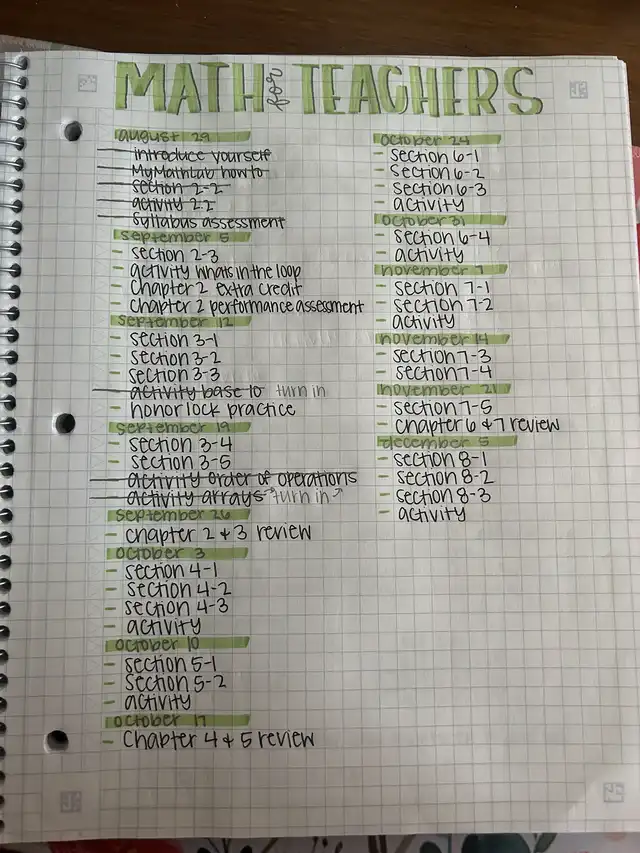 MATH for TEACHERS
august 29
- introduce yourself
- MyMathLab how to
- section 2-2
- activity 2.2
- syllabus assessment
september 5
- section 2-3
- activity whats in the loop
- Chapter 2 extra credit
- chapter 2 performance assessment
september 12
- section 3-1
- section 3-2
- section 3-3
- activity base 10 turn in
- honorlock practice
september 19
- section 3-4
- section 3-5
- activity order of operations
- activity arrays turn in
september 26
- chapter 2 & 3 review
october 3
- section 4-1
- section 4-2
- section 4-3
- activity
october 10
- section 5-1
- section 5-2
- activity
october 17
- Chapter 4 & 5 review
october 24
- section 6-1
- section 6-2
- section 6-3
- activity
october 31
- section 6-4
- activity
november 7
- section 7-1
- section 7-2
- activity
november 14
- section 7-3
- section 7-4
november 21
- section 7-5
- chapter 6 & 7 review
december 5
- section 8-1
- section 8-2
- section 8-3
- activity